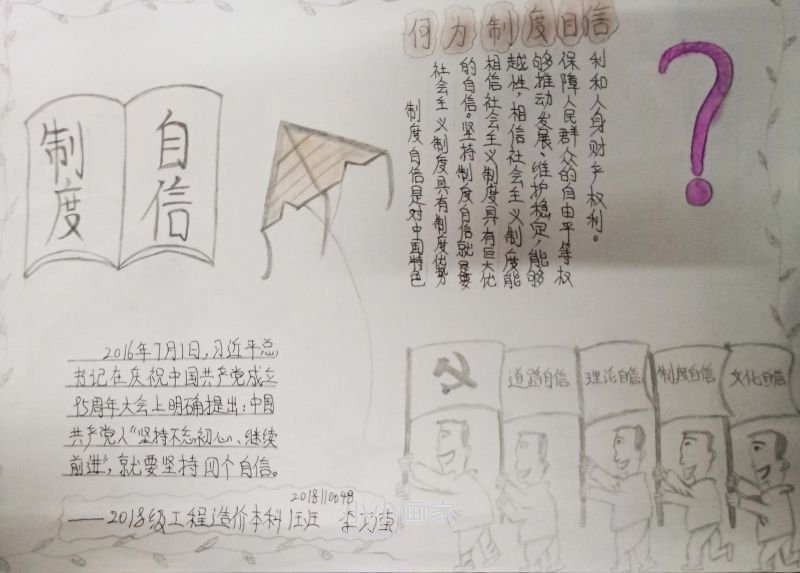 何为制度自信
制度
自信
制度自信是对中国特色
社会主义制度具有制度优势
的自信。坚持制度自信就是要
相信社会主义制度具有巨大优
越性,相信社会主义制度能
够推动发展、维护稳定,能够
保障人民群众的自由平等权
利和人身财产权利。
?
2016年7月1日,习近平总
书记在庆祝中国共产党成立
95周年大会上明确提出:中国
共产党人"坚持不忘初心、继续
前进",就要坚持四个自信。
2018110048
——2018级工程造价本科 李
画家
道路自信
理论自信
制度自信
文化自信